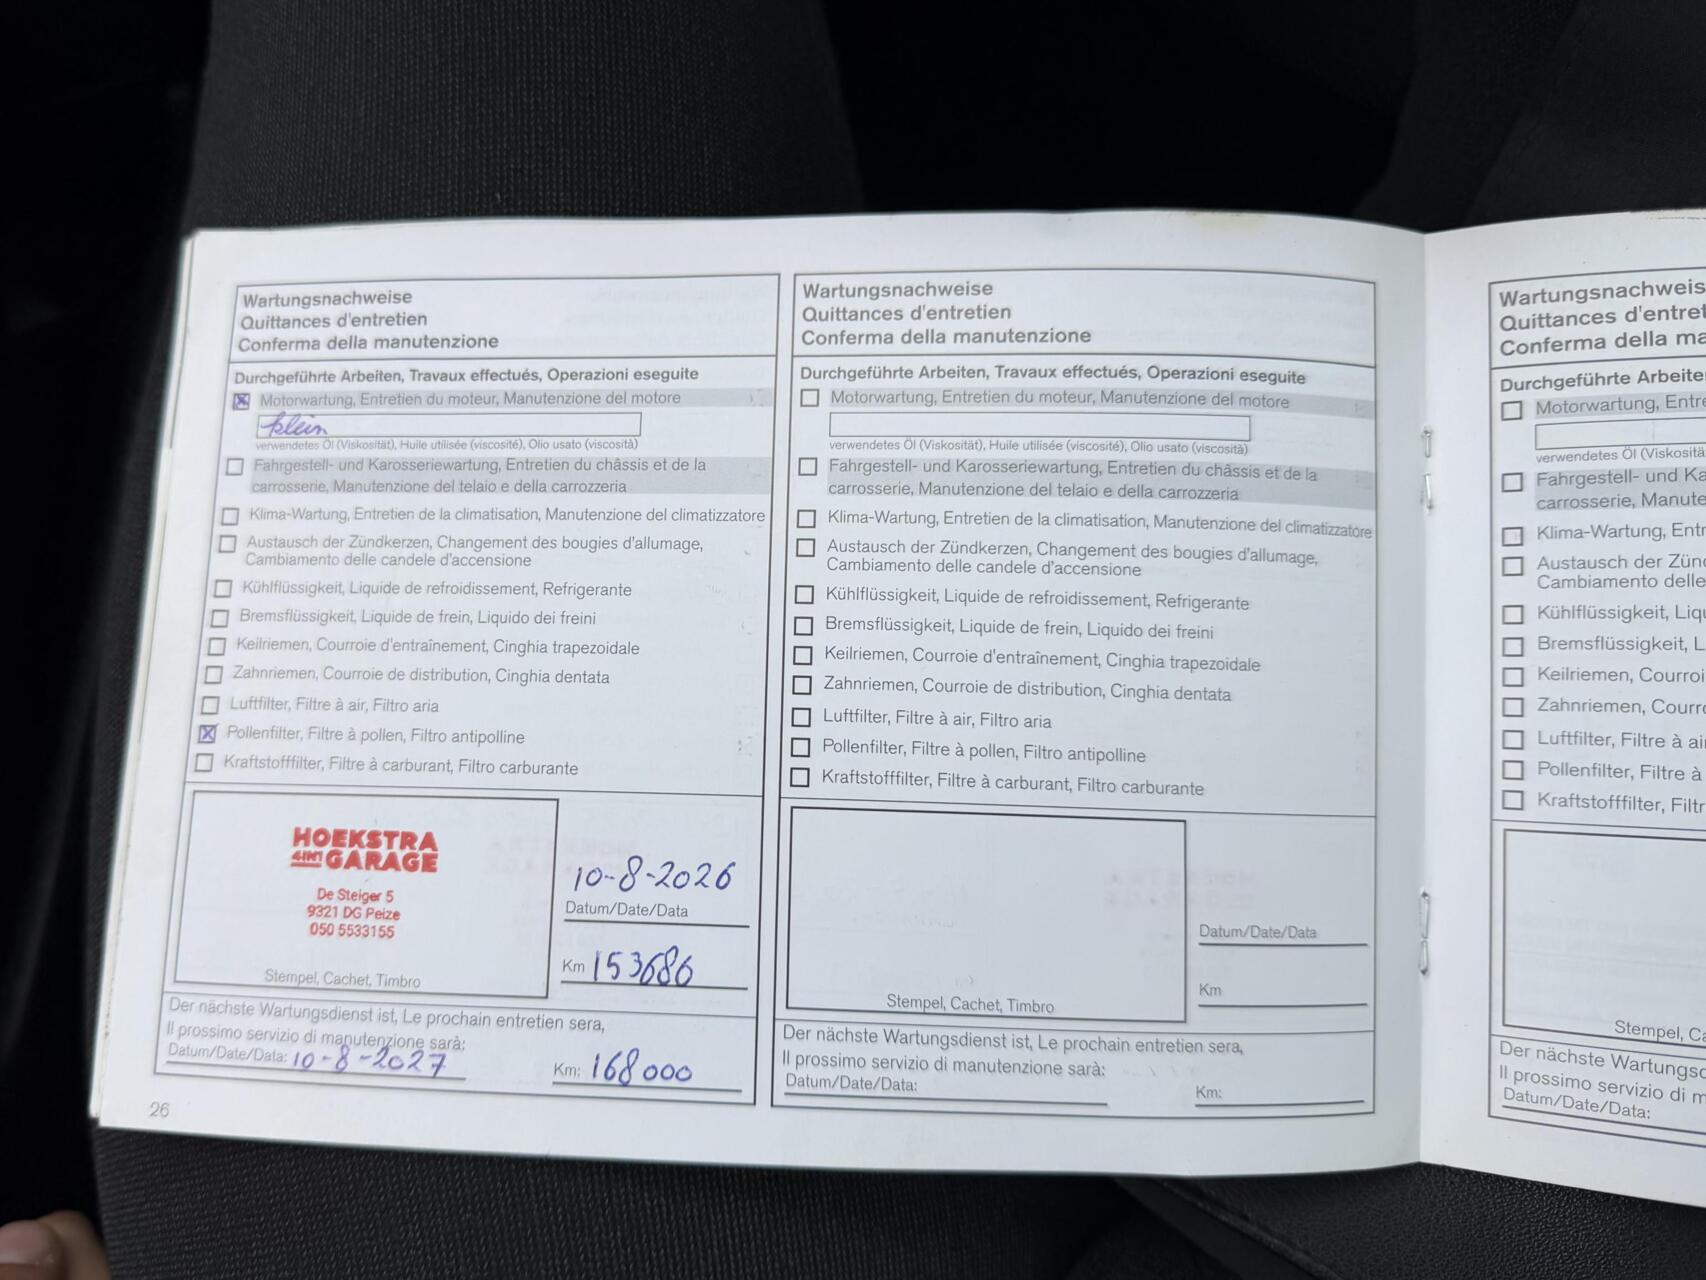 Wartungsnachweise
Quittances d'entretien
Conferma della manutenzione
Durchgeführte Arbeiten, Travaux effectués, Operazioni eseguite
Motorwartung, Entretien du moteur, Manutenzione del motore
klein
verwendetes Öl (Viskosität), Huile utilisée (viscosité), Olio usato (viscosità)
Fahrgestell- und Karosseriewartung, Entretien du châssis et de la
carrosserie, Manutenzione del telaio e della carrozzeria
Klima-Wartung, Entretien de la climatisation, Manutenzione del climatizzatore
Austausch der Zündkerzen, Changement des bougies d'allumage,
Cambiamento delle candele d'accensione
Kühlflüssigkeit, Liquide de refroidissement, Refrigerante
Bremsflüssigkeit, Liquide de frein, Liquido dei freini
Keilriemen, Courroie d'entraînement, Cinghia trapezoidale
Zahnriemen, Courroie de distribution, Cinghia dentata
Luftfilter, Filtre à air, Filtro aria
Pollenfilter, Filtre à pollen, Filtro antipolline
Kraftstofffilter, Filtre à carburant, Filtro carburante
HOEKSTRA
4IN1 GARAGE
De Steiger 5
9321 DG Peize
050 5533155
Stempel, Cachet, Timbro
10-8-2026
Datum/Date/Data
Km 153686
Der nächste Wartungsdienst ist, Le prochain entretien sera,
Il prossimo servizio di manutenzione sarà:
Datum/Date/Data: 10-8-2027 Km: 168000
26
Wartungsnachweise
Quittances d'entretien
Conferma della manutenzione
Durchgeführte Arbeiten, Travaux effectués, Operazioni eseguite
Motorwartung, Entretien du moteur, Manutenzione del motore
verwendetes Öl (Viskosität), Huile utilisée (viscosité), Olio usato (viscosità)
Fahrgestell- und Karosseriewartung, Entretien du châssis et de la
carrosserie, Manutenzione del telaio e della carrozzeria
Klima-Wartung, Entretien de la climatisation, Manutenzione del climatizzatore
Austausch der Zündkerzen, Changement des bougies d'allumage,
Cambiamento delle candele d'accensione
Kühlflüssigkeit, Liquide de refroidissement, Refrigerante
Bremsflüssigkeit, Liquide de frein, Liquido dei freini
Keilriemen, Courroie d'entraînement, Cinghia trapezoidale
Zahnriemen, Courroie de distribution, Cinghia dentata
Luftfilter, Filtre à air, Filtro aria
Pollenfilter, Filtre à pollen, Filtro antipolline
Kraftstofffilter, Filtre à carburant, Filtro carburante
Stempel, Cachet, Timbro
Datum/Date/Data
Km
Der nächste Wartungsdienst ist, Le prochain entretien sera,
Il prossimo servizio di manutenzione sarà:
Datum/Date/Data: Km:
Wartungsnachweis
Quittances d'entret
Conferma della ma
Durchgeführte Arbeite
Motorwartung, Entre
verwendetes Öl (Viskositä
Fahrgestell- und Ka
carrosserie, Manute
Klima-Wartung, Entr
Austausch der Zünd
Cambiamento delle
Kühlflüssigkeit, Liqu
Bremsflüssigkeit, L
Keilriemen, Courroi
Zahnriemen, Courr
Luftfilter, Filtre à ai
Pollenfilter, Filtre à
Kraftstofffilter, Filtr
Stempel, Ca
Der nächste Wartungsd
Il prossimo servizio di m
Datum/Date/Data: